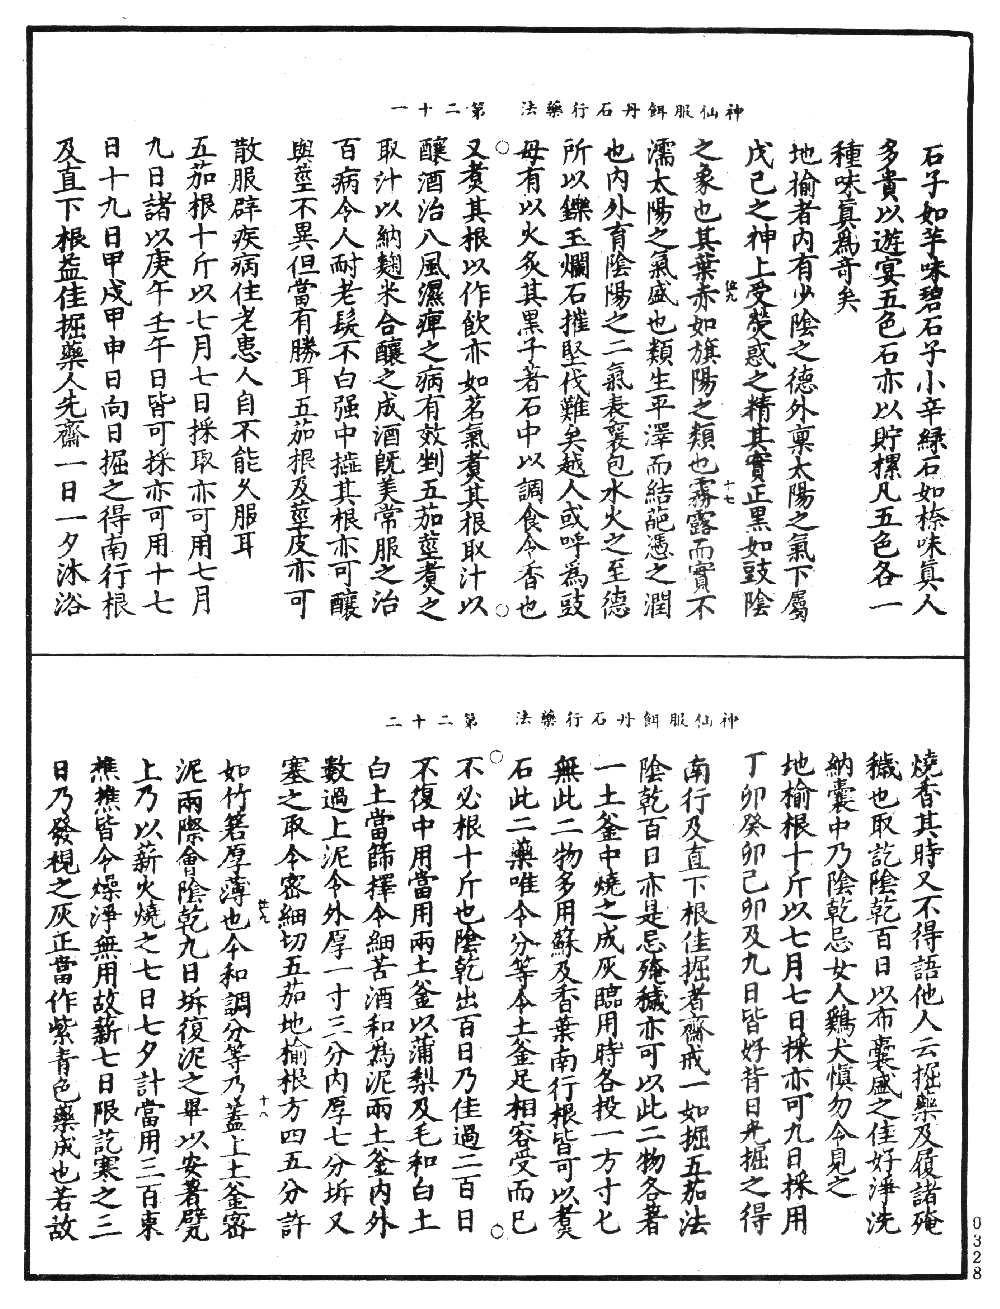 神仙服餌丹石行藥法　第二十一
石子如芋味碧石子小辛綠石如桼味真人
多貴以遊宴五色石亦以貯摞凡五色各一
種味真爲竒矣
地榆者內有少陰之德外稟太陽之氣下屬
戊己之神上受熒惑之精其實正黑如豉陰
之象也其葉赤如旗陽之類也霧露而實不
濡太陽之氣盛也類生平澤而結葩憑之潤
也內外育陰陽之二氣表裏包水火之至德
所以鑠玉爛石摧堅伐難矣越人或呼爲豉
母有以火炙其黑子著石中以調食令香也
又煑其根以作飲亦如茗氣煑其根取汁以
釀酒治八風濕痺之病有效剉五茄莖煑之
取汁以納麴米合釀之成酒旣美常服之治
百病令人耐老髮不白强中搥其根亦可釀
與莖不異但當有勝耳五茄根及莖皮亦可
散服辟疾病住老患人自不能久服耳
五茄根十斤以七月七日採取亦可用七月
九日諸以庚午壬午日皆可採亦可用十七
日十九日甲戌甲申日向日掘之得南行根
及直下根益佳掘藥人先齋一日一夕沐浴
伍九
十七
神仙服餌丹石行藥法　第二十二
燒香其時又不得語他人云掘藥及履諸殗
穢也取訖陰乾百日以布囊盛之佳好淨洗
納囊中乃陰乾忌女人鷄犬慎勿令見之
地榆根十斤以七月七日採亦可九日採用
丁卯癸卯己卯及九日皆好背日光掘之得
南行及直下根佳掘者齋戒一如掘五茄法
陰乾百日亦是忌殗穢亦可以此二物各著
一土釜中燒之成灰臨用時各投一方寸七
無此二物多用蘇及香葉南行根皆可以煑
石此二藥唯令分等令土釜足相容受而已
不必根十斤也陰乾出百日乃佳過二百日
不復中用當用兩土釜以蒲梨及毛和白土
白土當篩擇令細苦酒和爲泥兩土釜內外
數過上泥令外厚一寸三分內厚七分坼又
塞之取令密細切五茄地榆根方四五分許
如竹箸厚薄也令和調分等乃蓋上土釜密
泥兩際會陰乾九日坼復泥之畢以安著甓
上乃以薪火燒之七日七夕計當用三百束
樵樵皆令燥淨無用故薪七日限訖寒之三
日乃發視之灰正當作紫青色藥成也若故
伍九
十八
0328